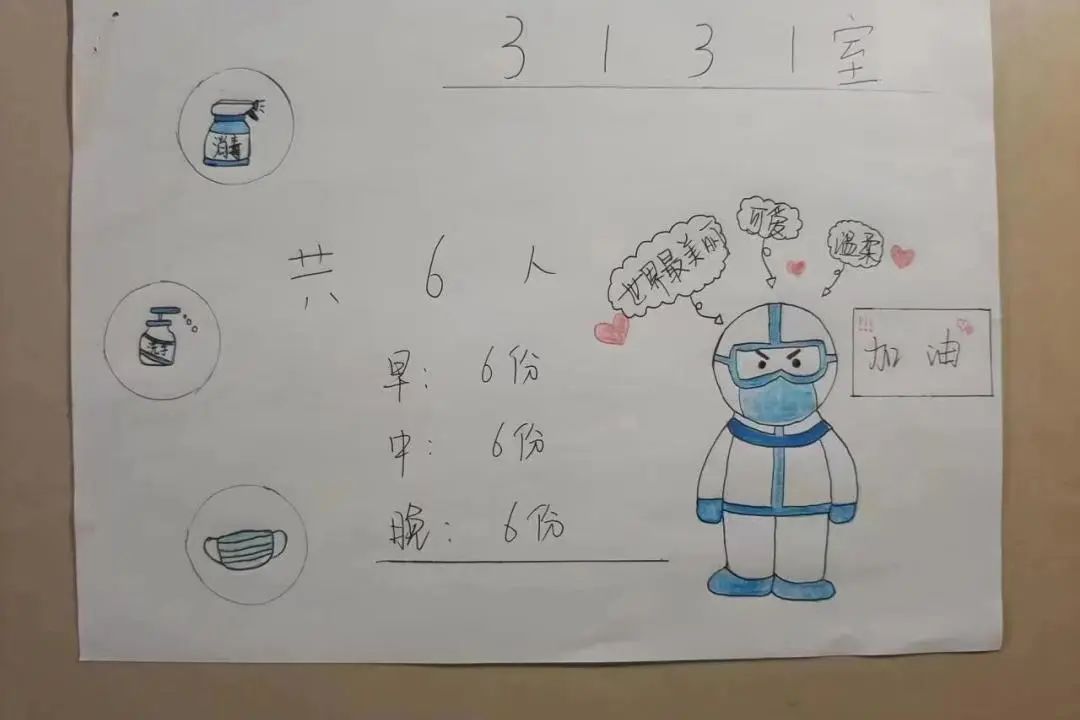 3131室
消毒
可爱
温柔
世界最美丽
共 6 人
洗手
!!!
加油
早: 6份
中: 6份
晚: 6份